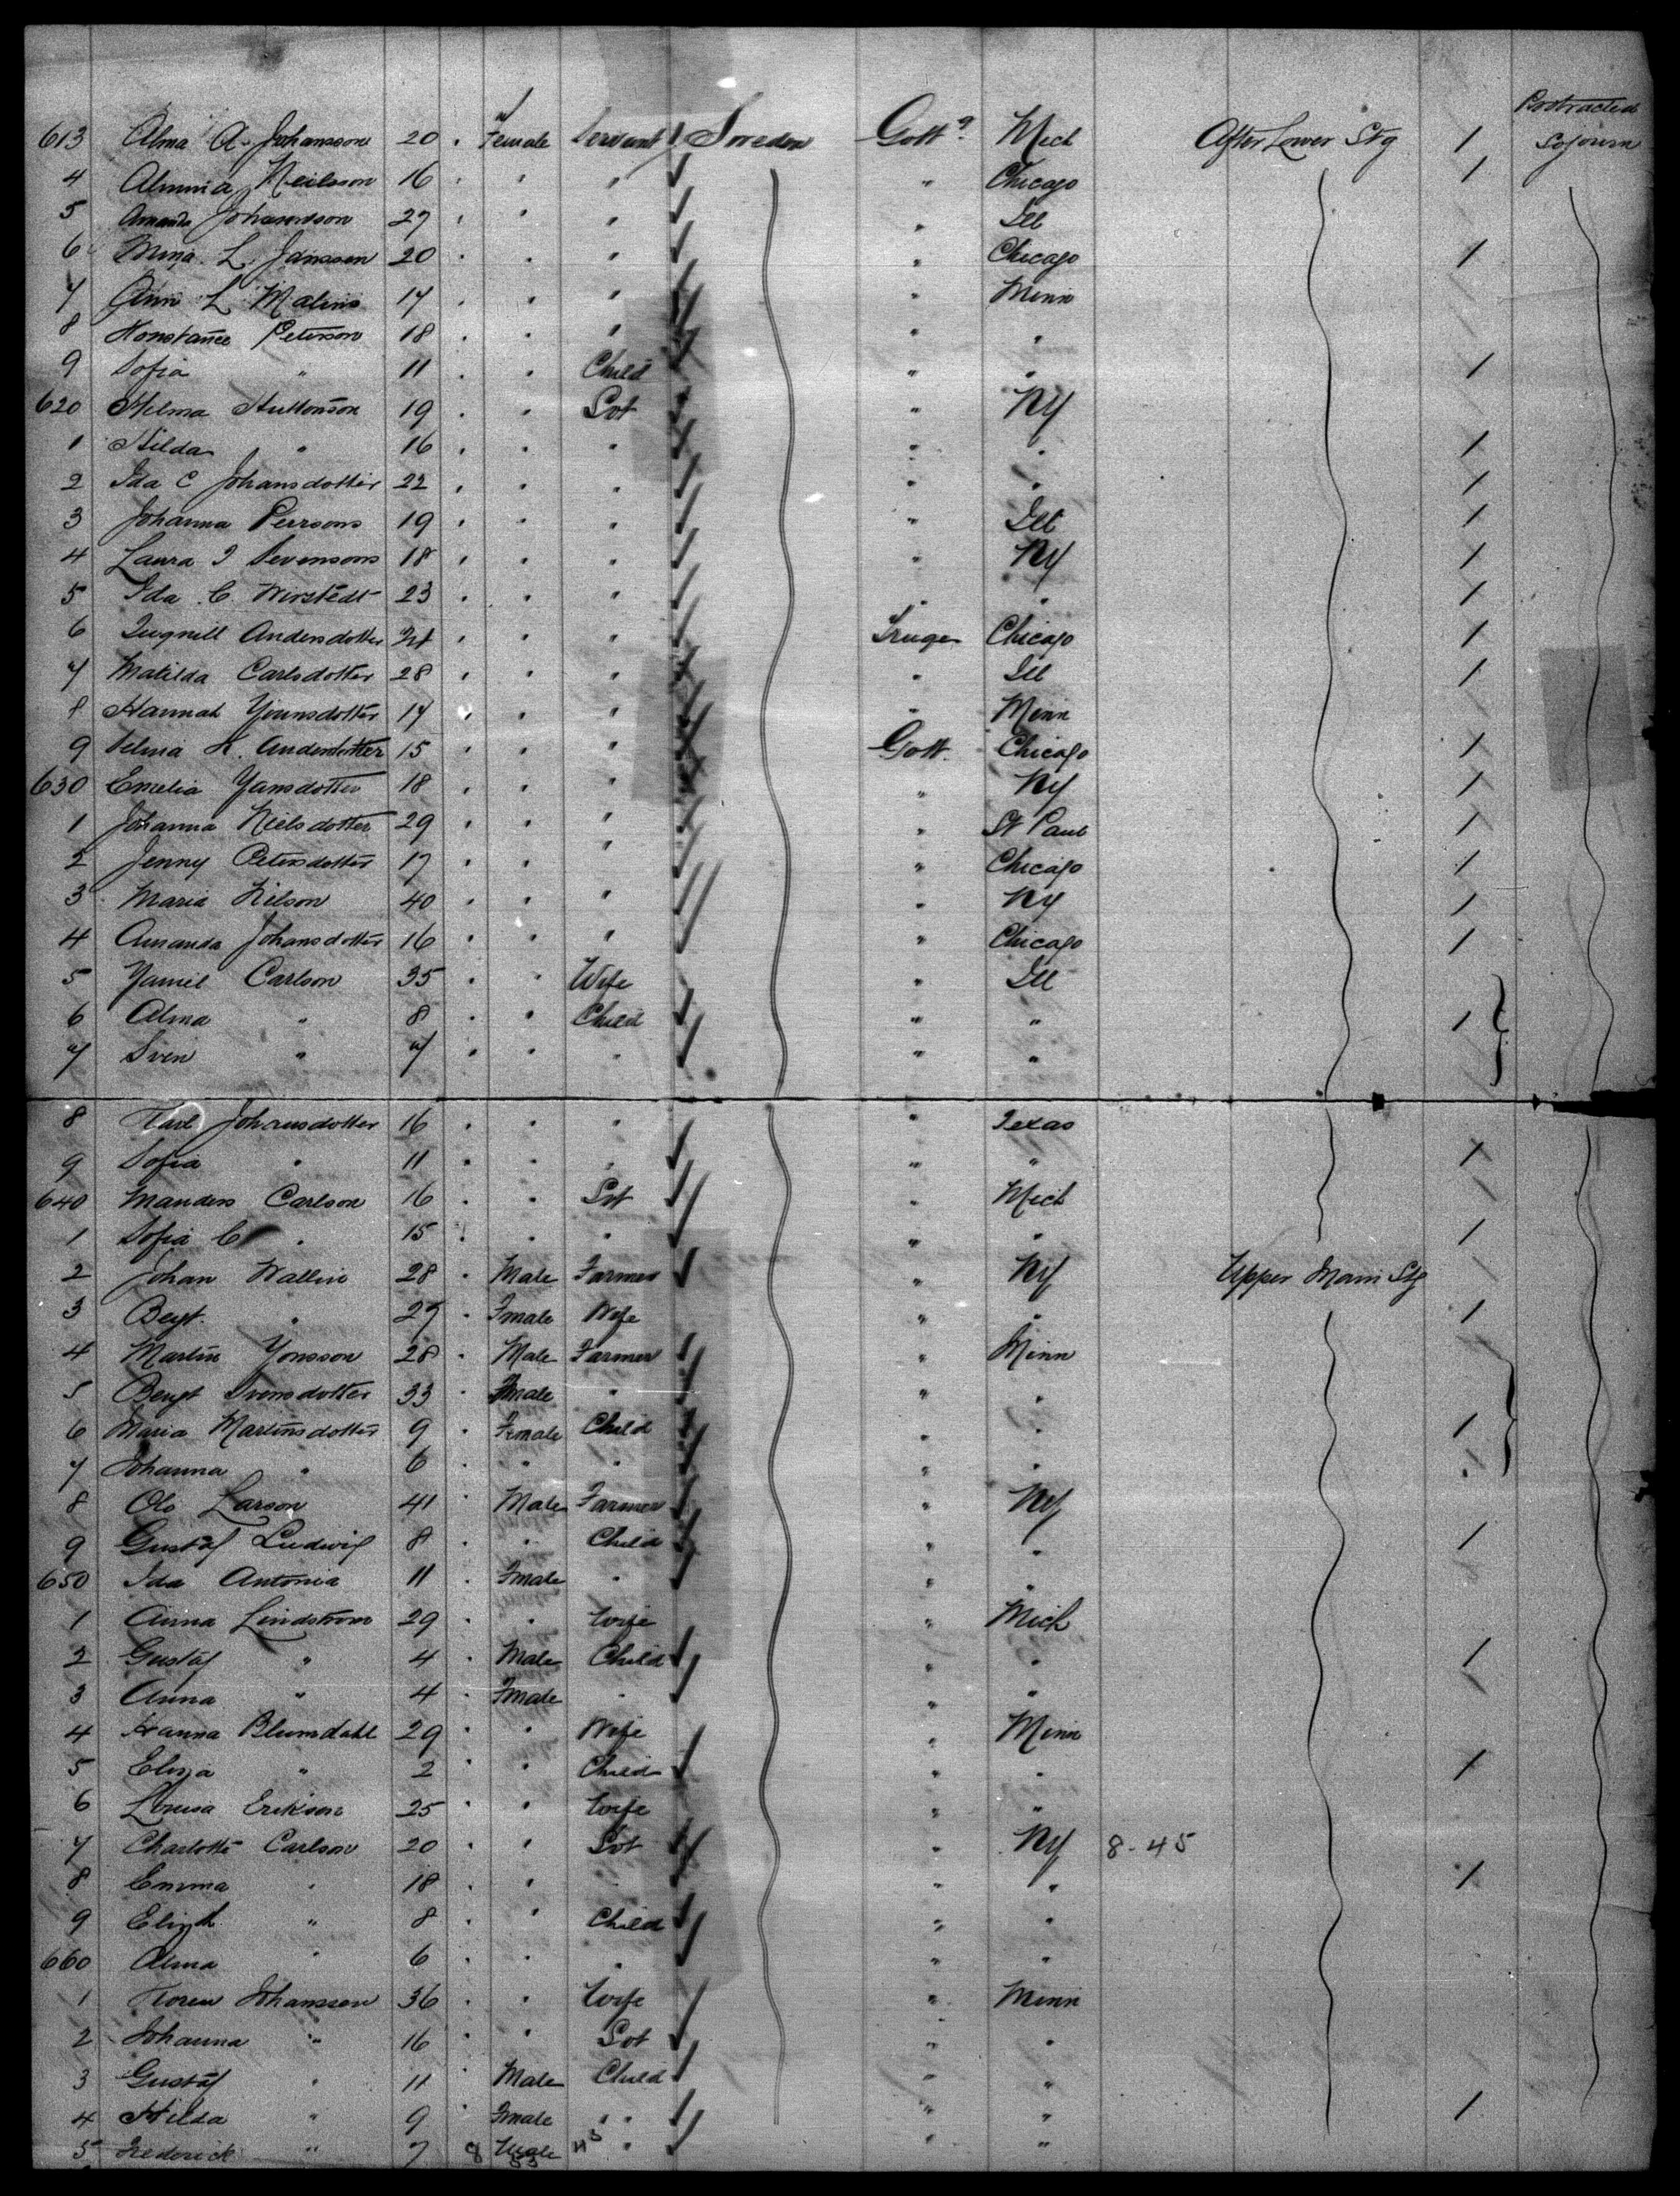 Protracted
613 Alma A. Johansson 20 " Female Servant Sweden Gottg Mich After Lower Stg 1 Sojourn
4 Almina Neilsson 16 " " " " Chicago 1
5 Amanda Johansson 27 " " " " Ill
6 Mina L. Janssen 20 " " " " Chicago 1
7 Ann L Malins 17 " " " " Minn
8 Konstance Peterson 18 " " " " "
9 Sofia " 11 " " Child " " 1
620 Helma Huttonson 19 " " Svt " NY
1 Hilda " 16 " " " " " 1
2 Ida C Johansdotter 22 " " " " " 1
3 Johanna Perrsons 19 " " " " Ill 1
4 Laura I Sevensons 18 " " " " NY 1
5 Ida C. Wirstedt 23 " " " " " 1
6 Andersdotter " " " Chicago 1
7 Matilda Carlsdotter 28 " " " " Ill 1
8 Hannah Younsdotter 17 " " " " Minn
9 Selma K. Andersdotter 15 " " " Gott. Chicago 1
630 Emelia Yansdotter 18 " " " " NY 1
1 Johanna Nielsdotter 29 " " " " St Paul 1
2 Jenny Petersdotter 17 " " " " Chicago 1
3 Maria Nilson 40 " " " " NY 1
4 Amanda Johansdotter 16 " " " " Chicago 1
5 Carlson 35 " " Wife " Ill
6 Alma " 8 " " Child " " 1
7 Sven " 7 " " " " "
8 Johansdotter 16 " " " " Texas
9 Sofia " 11 " " " " " 1
640 Manders Carlson 16 " " Svt " Mich
1 Sofia C " 15 " " " " " 1
2 Johan Wallin 28 " Male Farmer " NY Upper Main Stg
3 Beyt. " 27 " Fmale Wife " " 1
4 Martin Yonsson 28 " Male Farmer " Minn
5 Bengt Svensdotter 33 " Fmale " " "
6 Maria Martinsdotter 9 " Female Child " " 1
7 Johanna " 6 " " " " "
8 Ols Larson 41 " Male Farmer " NY
9 Gustaf Ludwig 8 " " Child " " 1
650 Ida Antonia 11 " Fmale " " "
1 Anna Lindstrom 29 " " Wife " Mich
2 Gustaf " 4 " Male Child " " 1
3 Anna " 4 " Fmale " " "
4 Hanna Blumsdahl 29 " " Wife " Minn
5 Eliza " 2 " " Child " " 1
6 Louisa Erikson 25 " " Wife " "
7 Charlotte Carlson 20 " " Svt " NY 8-45
8 Emma " 18 " " " " " 1
9 Elizh " 8 " " Child " "
660 Alma " 6 " " " " "
1 Johansson 36 " " Wife " Minn
2 Johanna " 16 " " Svt " "
3 Gustaf " 11 " Male Child " "
4 Hilda " 9 " Fmale " " " " 1
5 Frederick " 7 8 Male " " "